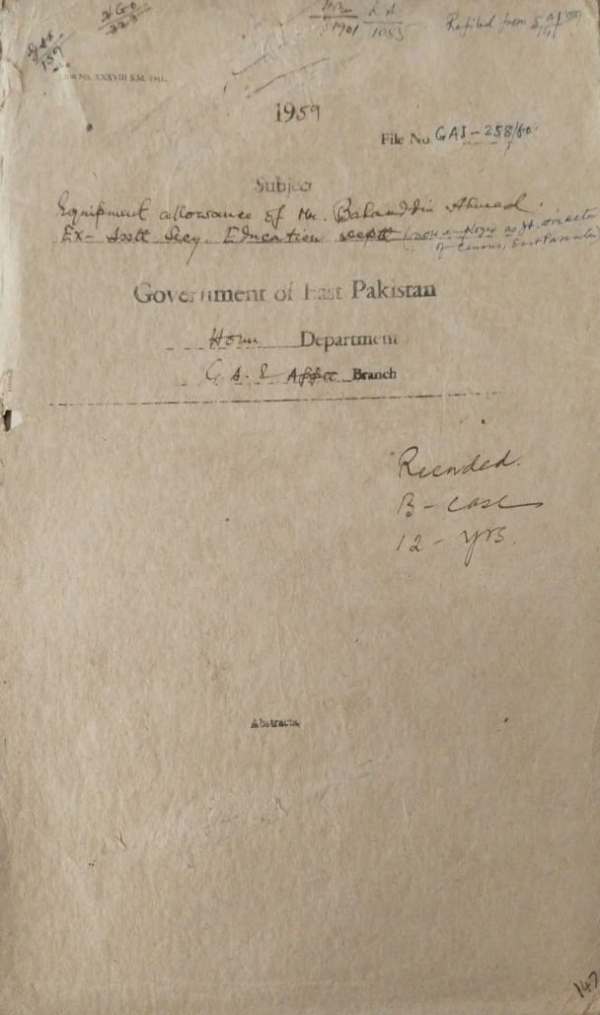 1959
File No GAI-258/60
Subject
Equipment allowance of Mr. Bahauddin Ahmad.
Ex- Asstt Secy. Education deptt (now employed as Jt. Director
of Census, East Pakistan)
Government of East Pakistan
Home Department
G A. & Apptt Branch
Recorded.
B- case
12 - yrs.
Abstracts,
147